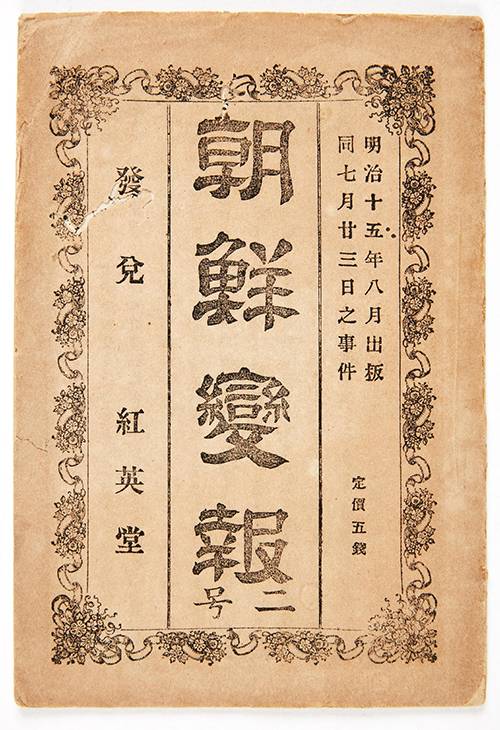 明治十五年八月出版
同七月廿三日之事件
定價五錢
朝鮮變報
二号
發兌 紅英堂